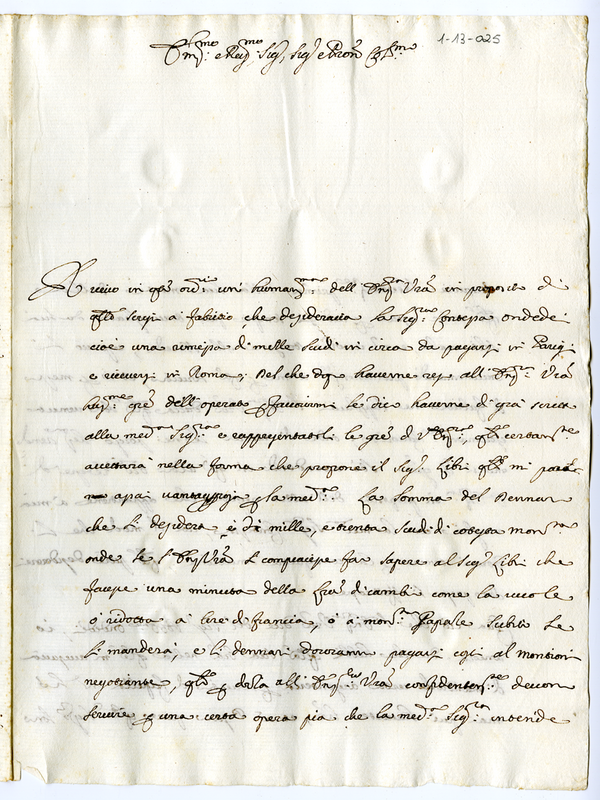 1-13-025
Em.mo e Rev.mo Sig.r Sig.r e Pron Col.mo
Ricevo in q.to ord.rio un' humaniss.ma dell' Em.za V.ra in proposito di
q.llo scrissi a fabritio che desiderava la Sig.ra Contessa
cioè una rimessa di mille scudi in circa da pagarsi in Parigi
e riceversi in Roma; Del che dop haverne rese all' Em.za V.ra
hum.me gr.e dell' operato favorirmi le dico haverne di già scritto
alla med.ma Sig.ra e rappresentatoli le gr.e di V. Em.za, q.le certam.te
accettarà nella forma che propone il Sig.r Libri q.le mi
assai vantaggiosa la med.ma La somma del Dennaro
che si desidera è di mille, e trenta scudi di cotesta mon.ta
onde se l' Em.za V.ra si compiacesse far sapere al Sig.r Libri che
facesse una minuta della l.ra di cambi come la vuole
ò ridotta à lire di francia, ò à mon.ta Papale subito se
li manderà, e li dennari dovranno pagarsi costì al
negotiante, q.li detto all' Em.za V.ra confidentem.te devon
servire una certa opera pia che la med.ma Sig.ra intende